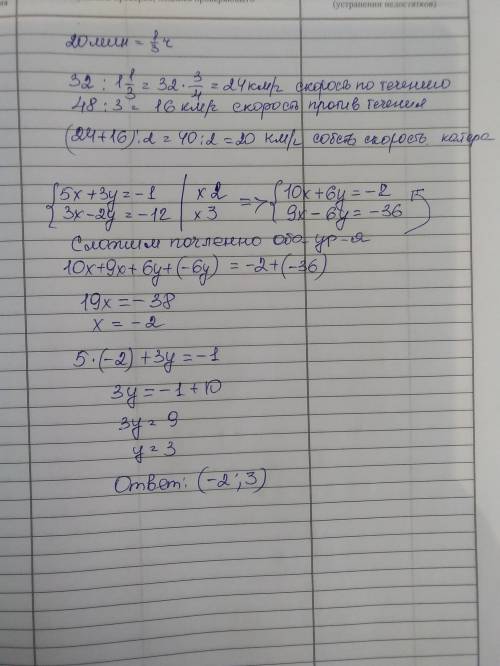 (устранения недостатков)
20 мин = 1/3 ч
32 : 1 1/3 = 32 · 3/4 = 24 км/ч скорость по течению
48 : 3 = 16 км/ч скорость против течения
(24+16) : 2 = 40 : 2 = 20 км/ч собств скорость катера
{5x+3y=-1 | x 2 => {10x+6y=-2
{3x-2y=-12 | x 3 {9x-6y=-36
Сложим почленно оба ур-я
10x+9x+6y+(-6y) = -2+(-36)
19x = -38
x = -2
5·(-2)+3y=-1
3y=-1+10
3y=9
y=3
Ответ: (-2; 3)